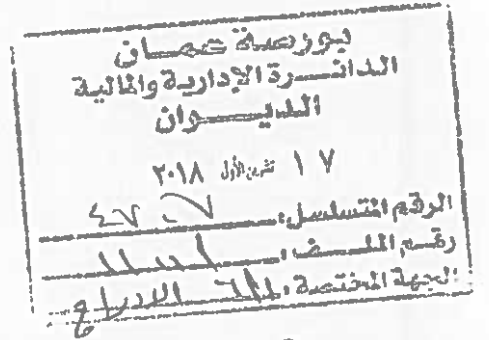 بورصة عمان
الدائرة الإدارية والمالية
الديوان
١٧ تشرين الأول ٢٠١٨
الرقم المتسلسل:
رقم الملف:
الجهة المختصة: الادراج